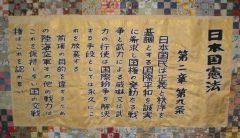 日本国憲法
第二章 第九条
日本国民は正義と秩序を
基調とする国際平和を誠実
に希求し、国権の発動たる戦
争と武力による威嚇又は武
力の行使は国際紛争を解決
する手段としては永久にこ
れを放棄する
前項の目的を達するため
陸海空軍その他の戦力は
これを保持しない国の交戦
権はこれを認めない